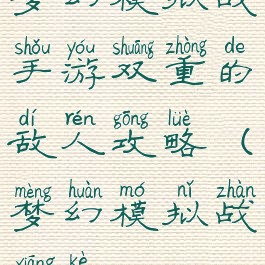 梦幻模拟战
shǒu yóu shuāng zhòng de
手游双重的
dí rén gōng lüè
敌人攻略（
mèng huàn mó nǐ zhàn
梦幻模拟战
xiāng kè